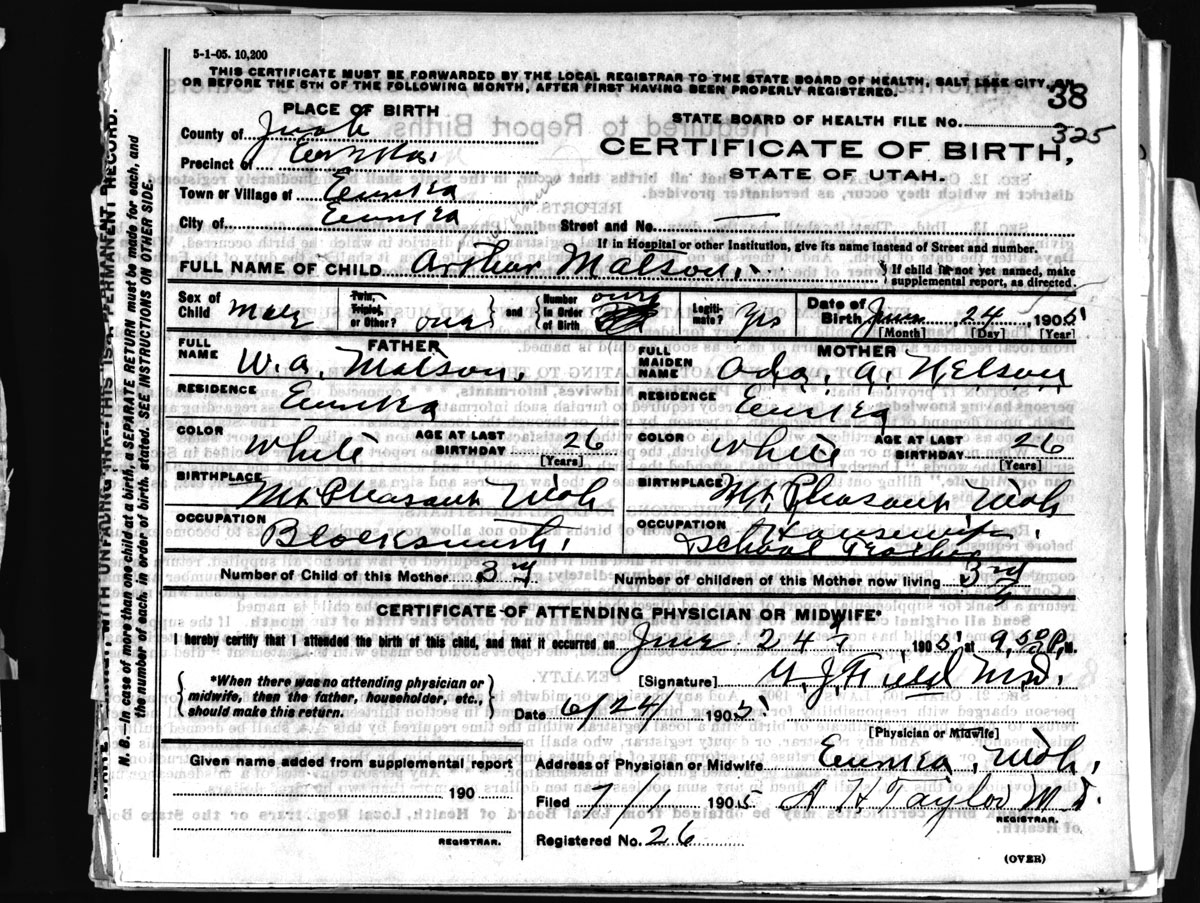 5-1-05. 10,200
THIS CERTIFICATE MUST BE FORWARDED BY THE LOCAL REGISTRAR TO THE STATE BOARD OF HEALTH, SALT LAKE CITY, ON
OR BEFORE THE 5TH OF THE FOLLOWING MONTH, AFTER FIRST HAVING BEEN PROPERLY REGISTERED.
38
PLACE OF BIRTH
STATE BOARD OF HEALTH FILE NO. 325
County of Juab
CERTIFICATE OF BIRTH,
Precinct of Eureka.
STATE OF UTAH.
Town or Village of Eureka
City of Eureka
Street and No. —
If in Hospital or other Institution, give its name instead of Street and number.
FULL NAME OF CHILD Arthur Matson. { If child is not yet named, make supplemental report, as directed.
Sex of Child Male
Twin, Triplet, or Other? one } and { Number in Order of Birth
Legitimate? Yes
Date of Birth June 24, 1905
[Month] [Day] [Year]
FATHER
MOTHER
FULL NAME W. A. Matson.
FULL MAIDEN NAME Ada. A. Nelson
RESIDENCE Eureka
RESIDENCE Eureka
COLOR White AGE AT LAST BIRTHDAY 26 [Years]
COLOR White AGE AT LAST BIRTHDAY 26 [Years]
BIRTHPLACE Mt Pleasant Utah
BIRTHPLACE Mt Pleasant Utah
OCCUPATION Blacksmith.
OCCUPATION Housewife.
School Teacher
Number of Child of this Mother 3rd
Number of children of this Mother now living 3rd
CERTIFICATE OF ATTENDING PHYSICIAN OR MIDWIFE*
I hereby certify that I attended the birth of this child, and that it occurred on June 24, 1905 at 9.50 P. M.
{ *When there was no attending physician or midwife, then the father, householder, etc., should make this return. }
[Signature] Field M.D.
Date 6/24/ 1905
[Physician or Midwife]
Given name added from supplemental report
Address of Physician or Midwife Eureka, Utah.
190
Filed 7/1 1905 Taylor M.D.
REGISTRAR.
REGISTRAR.
Registered No. 26
(OVER)
WITH UNFADING INK—THIS IS A PERMANENT RECORD.
N. B.—In case of more than one child at a birth, a SEPARATE RETURN must be made for each, and
the number of each, in order of birth, stated. SEE INSTRUCTIONS ON OTHER SIDE.